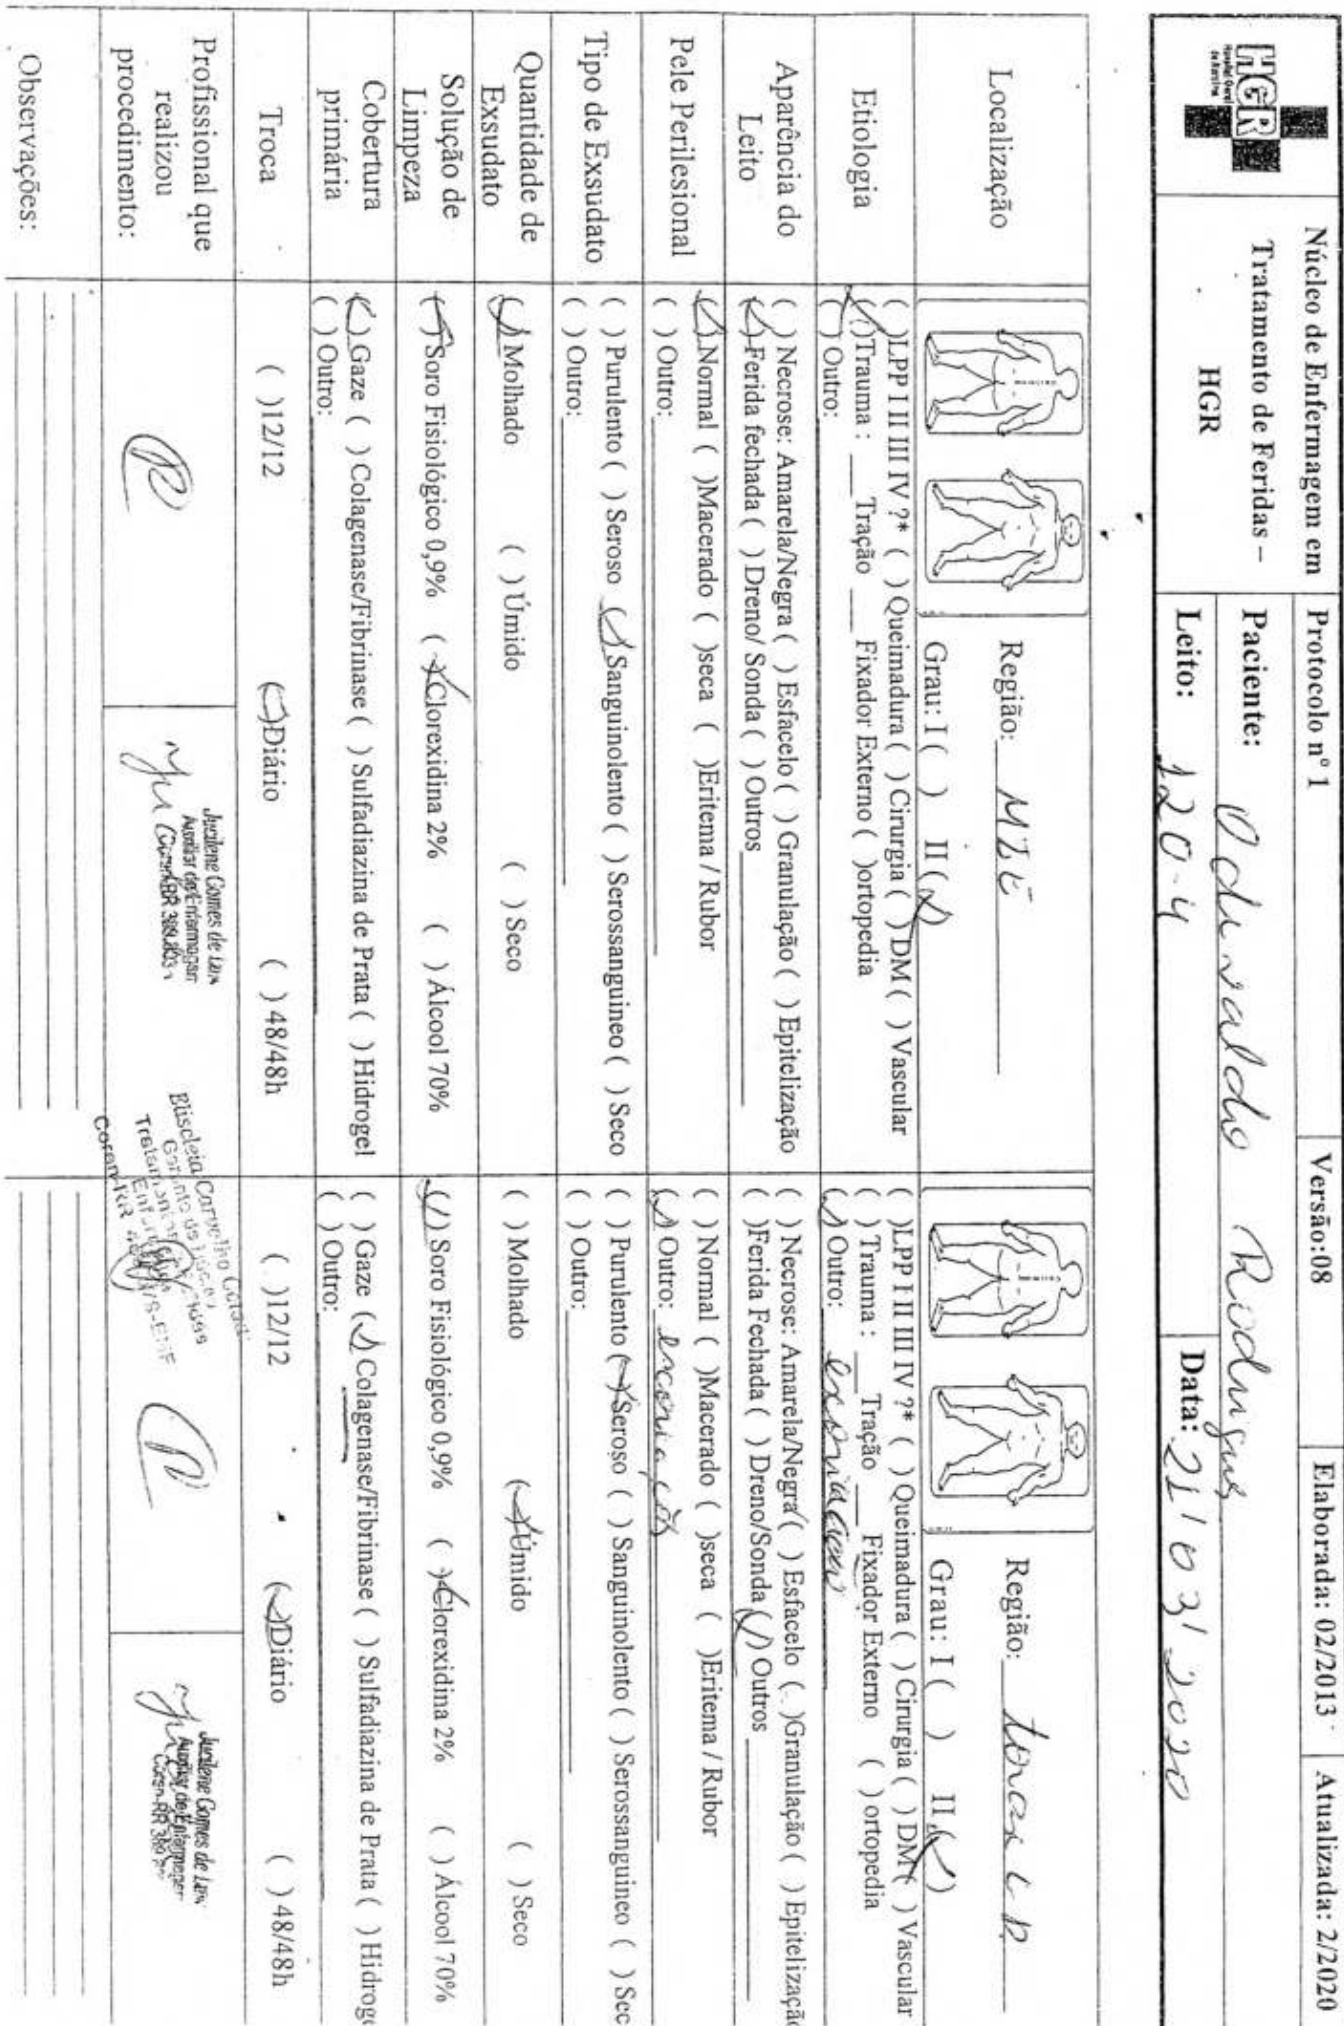 HGR
Hospital Geral
de Roraima
Núcleo de Enfermagem em
Tratamento de Feridas –
HGR
Protocolo nº 1
Versão:08
Elaborada: 02/2013
Atualizada: 2/2020
Paciente: Rodrigues
Leito: 120-4
Data: 21/03/2020
Localização
Região: MIE
Grau: I ( ) II (X)
Região: torax
Grau: I ( ) II (✓)
Etiologia
( )LPP I II III IV ?* ( ) Queimadura ( ) Cirurgia ( ) DM ( ) Vascular
(✓)Trauma : ___ Tração ___ Fixador Externo ( )ortopedia
( ) Outro:
( )LPP I II III IV ?* ( ) Queimadura ( ) Cirurgia ( ) DM ( ) Vascular
( ) Trauma : ___ Tração ___ Fixador Externo ( ) ortopedia
(✓) Outro:
Aparência do
Leito
( ) Necrose: Amarela/Negra ( ) Esfacelo ( ) Granulação ( ) Epitelização
(✓)Ferida fechada ( ) Dreno/ Sonda ( ) Outros
( ) Necrose: Amarela/Negra ( ) Esfacelo ( )Granulação ( ) Epitelização
( )Ferida Fechada ( ) Dreno/Sonda (✓) Outros
Pele Perilesional
(✓)Normal ( )Macerado ( )seca ( )Eritema / Rubor
( ) Outro:
( ) Normal ( )Macerado ( )seca ( )Eritema / Rubor
(✓) Outro: escoriação
Tipo de Exsudato
( ) Purulento ( ) Seroso (✓) Sanguinolento ( ) Serossanguineo ( ) Seco
( ) Outro:
( ) Purulento (✓)Seroso ( ) Sanguinolento ( ) Serossanguineo ( ) Sec
( ) Outro:
Quantidade de
Exsudato
(✓) Molhado ( ) Úmido ( ) Seco
( ) Molhado (✓)Úmido ( ) Seco
Solução de
Limpeza
(✓)Soro Fisiológico 0,9% (✓)Clorexidina 2% ( ) Álcool 70%
(✓) Soro Fisiológico 0,9% (✓)Clorexidina 2% ( ) Álcool 70%
Cobertura
primária
(✓) Gaze ( ) Colagenase/Fibrinase ( ) Sulfadiazina de Prata ( ) Hidrogel
( ) Outro:
( ) Gaze (✓) Colagenase/Fibrinase ( ) Sulfadiazina de Prata ( ) Hidroge
( ) Outro:
Troca
( )12/12 (✓)Diário ( ) 48/48h
( )12/12 (✓)Diário ( ) 48/48h
Profissional que
realizou
procedimento:
Jucilene Gomes de
Auxiliar de Enfermagem
Coren-RR
Coren-RR
Jucilene Gomes de
Auxiliar de Enfermagem
Coren-RR
Observações: